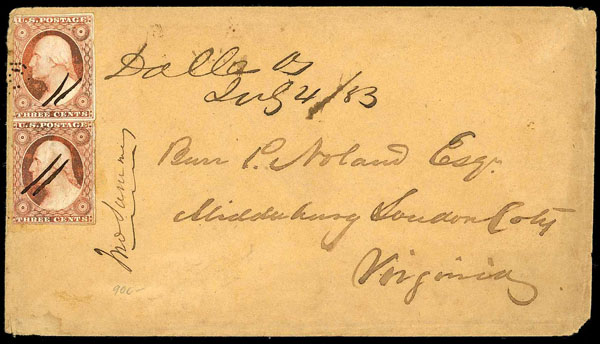 U.S. POSTAGE
THREE CENTS
U.S. POSTAGE
THREE CENTS
Dalles Os
July 4/53
Burr P. Noland Esq.
Middleburg Loudon Coty
Virginia
900-